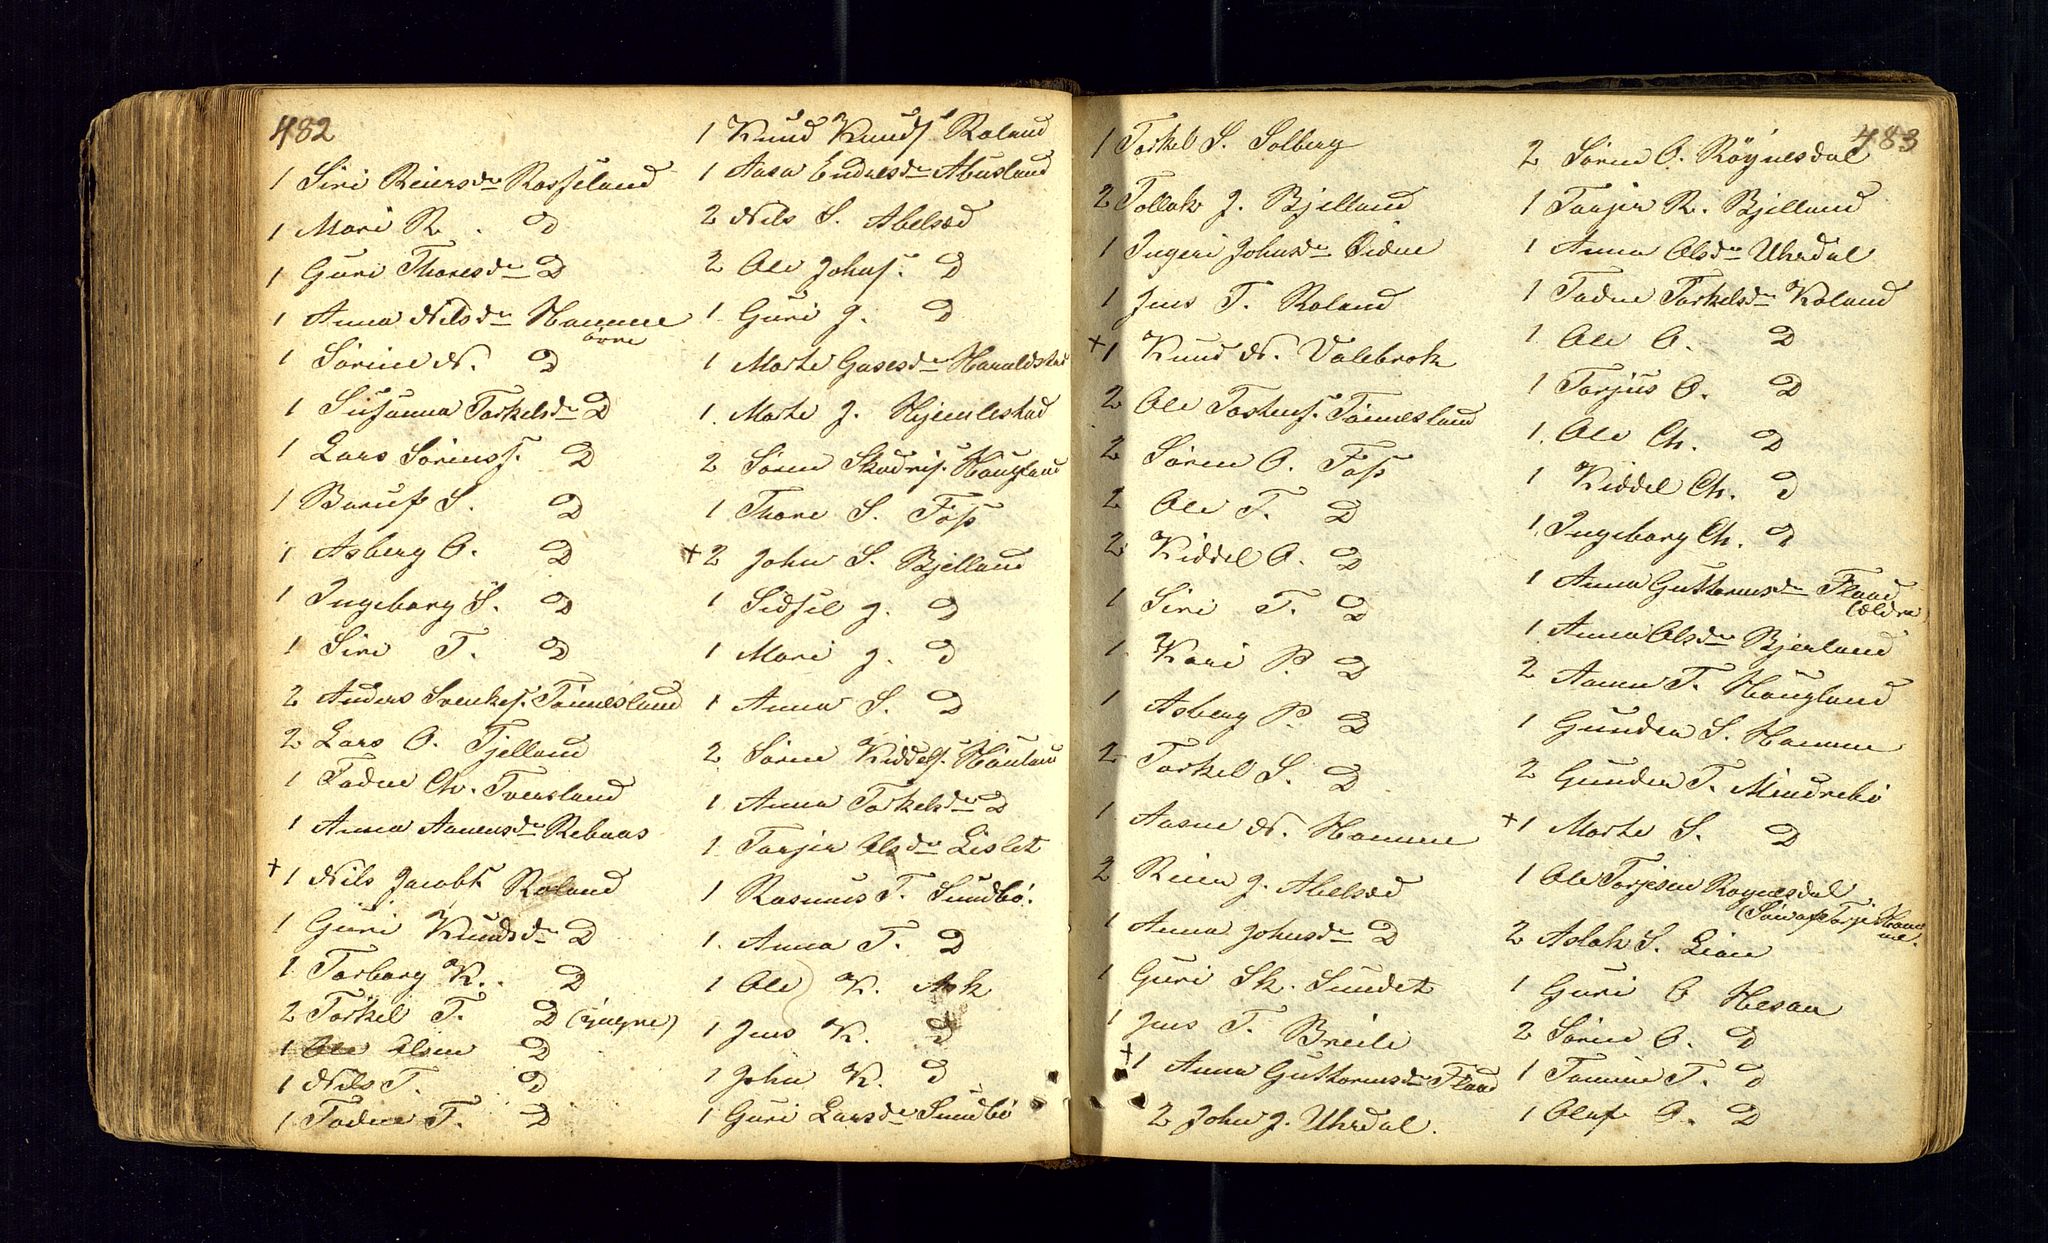 482
1 Siri Reiersdr Rosseland
1 Mari R. D
1 Guri Thoresdr D
1 Anna Nilsdr Hamme
övre
1 Sörine N. D
1 Susanna Torkelsdr D
1 Lars Sörenss. D
1 Baruf S. D
1 Asberg O. D
1 Ingeborg S. D
1 Siri T. D
2 Anders Svenkes. Tönnesland
2 Lars O. Fjelland
1 Tadne Ch. Tversland
1 Anna Aanensdr Rebaas
+1 Nils Jacobs. Roland
1 Guri Knudsdr D
1 Torborg K. D
2 Torkel T. D (yngre)
1 Ole Olsen D
1 Nils T. D
1 Tadne T. D
1 Knud Knuds. Roland
1 Aasa Endresdr Abusland
2 Nils S. Abelsæd
2 Ole Johns. D
1 Guri J. D
1 Marte Gasesdr Haraldstad
1 Marte J. Hjemlestad
2 Sören Skadris. Haugland
1 Thore S. Foss
+2 John S. Bjelland
1 Sidsel J. D
1 Mari J. D
1 Anna S. D
2 Sören Kiddels. Hauland
1 Anna Torkelsdr D
1 Torjer Olsdr Lislet
1 Rasmus T. Sundbö.
1 Anna T. D
1 Ole K. Ask
1 Jens K. D
1 John K. D
1 Guri Larsdr Sundbö
483
1 Torkel S. Solberg
2 Tollak J. Bjelland
1 Ingeri Johnsdr Eidne
1 Jens T. Roland
+1 Knud N. Valebrok
2 Ole Torkens. Tönnesland
2 Sören O. Foss
2 Ole T. D
2 Kiddel O. D
1 Siri T. D
1 Kari P. D
1 Asberg P. D
2 Torkel S. D
1 Aasne N. Hamme
2 Reier J. Abelsæd
1 Anna Johnsdr D
1 Guri Sk. Sundet
1 Jens T. Breili
+1 Anna Guttormsdr Flaad
2 John J. Uhrdal.
2 Sören O. Röynesdal
1 Torjer R. Bjelland
1 Anna Olsdr Uhrdal
1 Tadne Torkelsdr Roland
1 Ole O. D
1 Torjus O. D
1 Ole Ch. D
1 Kiddel Ch. D
1 Ingeborg Ch. D
1 Anna Guttormsdr Flaad
(ældre)
1 Anna Olsdr Bjerland
2 Aanen T. Haugland
1 Gunder S. Hamme
2 Gunder T. Mindrebö
+1 Marte S. D
1 Ole Torjesen Roynesdal
(Sön af Torje Ham
me.
2 Aslak S. Lian
1 Guri O Hesaa
2 Sören O. D
1 Tomine T. D
1 Oluf O. D